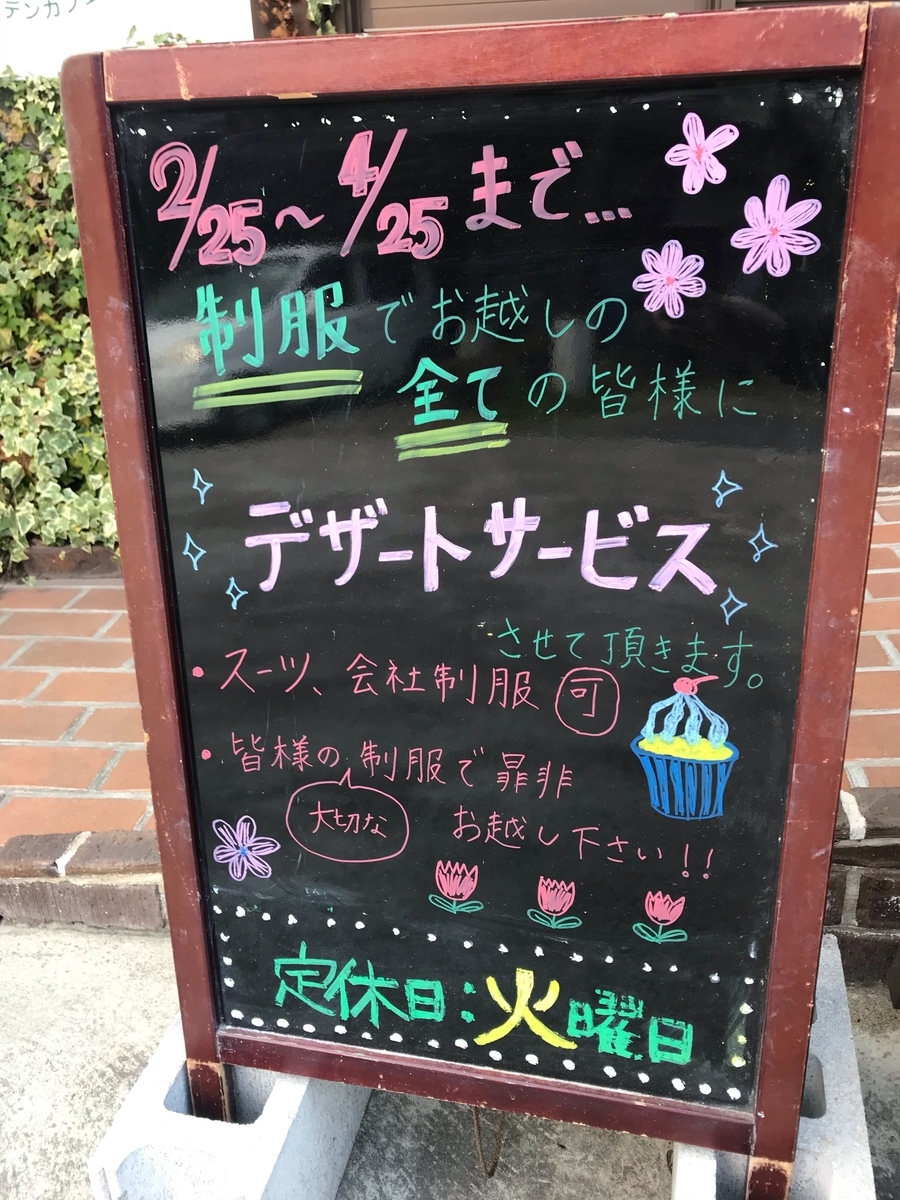 デンカフ
2/25〜4/25まで...
制服でお越しの
全ての皆様に
デザートサービス
させて頂きます。
・スーツ、会社制服 可
・皆様の制服で是非
大切な
お越し下さい!!
定休日:火曜日